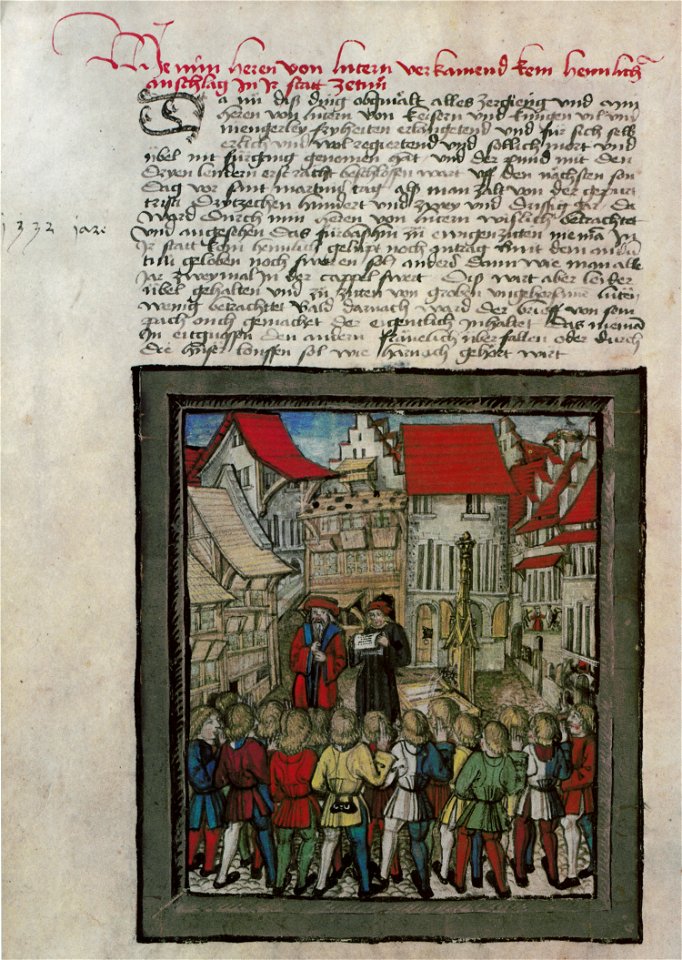 Wie min heren von lucern verkamend kein heimlich
anschlag in ir statt ze tun
Da nu diß ding obgemält alles zergieng und min
heren von lucern von keisern und kungen vil und
mengerley fryheiten erlangetend und für sich selb
erlich und wol regiertend und sollich mort und
übel nit fürgang genomen hat und der pund mit den
dryen lendern erst racht beschlossen wart uff den nächsten sun
dag vor sant martins tag als man zalt von der geburt
cristi drytzechen hundert und zwey und drissig jar Da
ward durch min heren von lucern wislich betrachtet
und angesechen das fürbashin zu ewigen ziten nieman in
ir statt kein heimlich noch mit dem andern
tun geloben noch sweren sol anders dann wie man alle
jar zweymal in der cappel swert Dis wart aber leider
übel gehalten und zu ziten von groben ungehorsame lüten
wenig betrachtet Bald darnach ward der brieff von sem
pach ouch gemachet der eigentlich inhaltet das nieman
in eitgnossen den andern fräuelich überfallen oder durch
die hüser louffen sol wie harnach gehört wirt
1332 jare